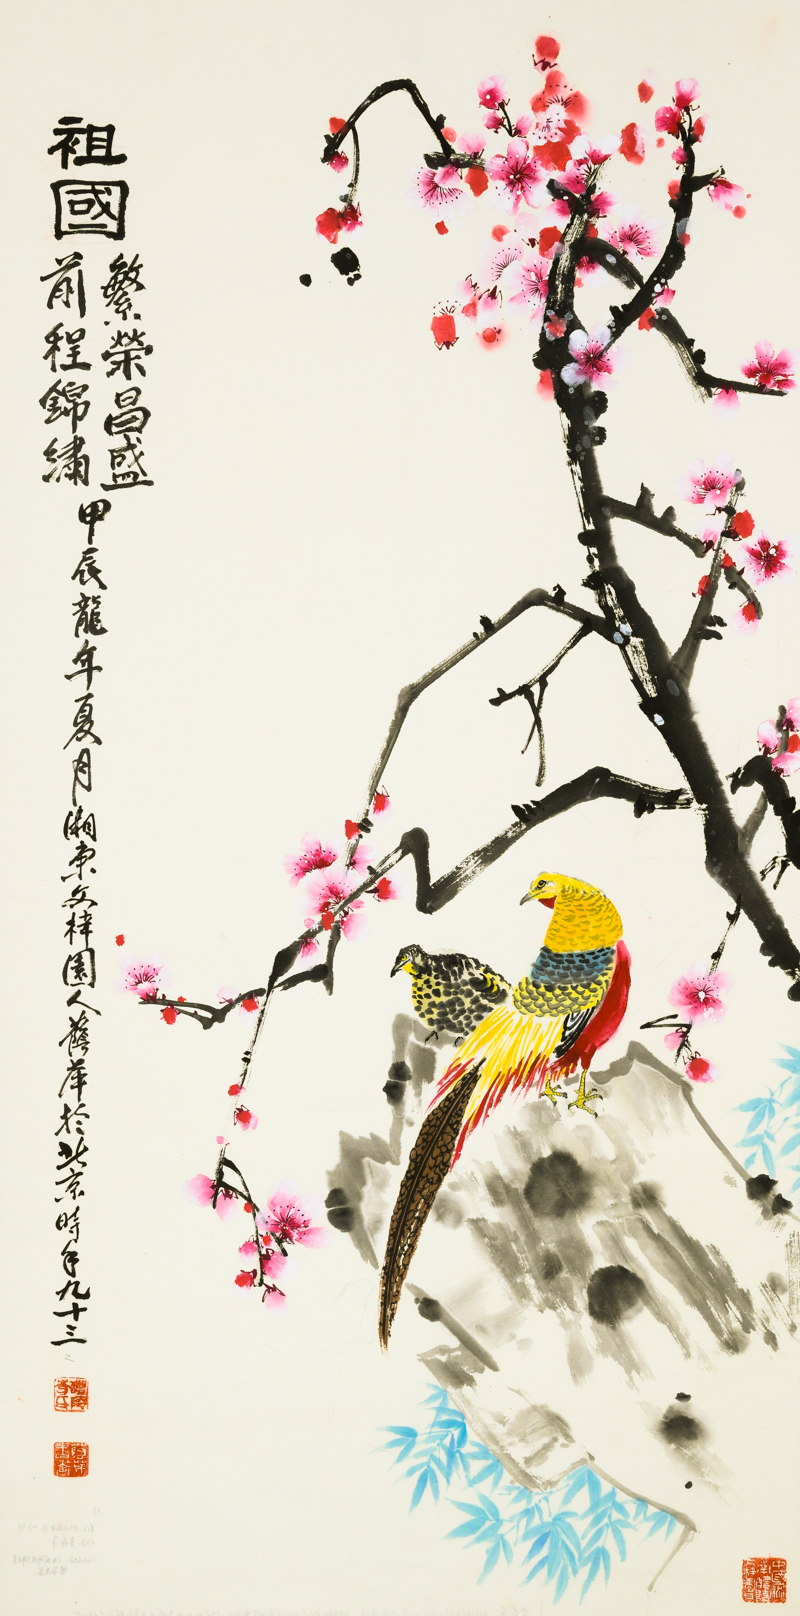 祖國
繁榮昌盛
前程錦繡
甲辰龍年夏月湘東文梓園人舊萍於北京時年九十三